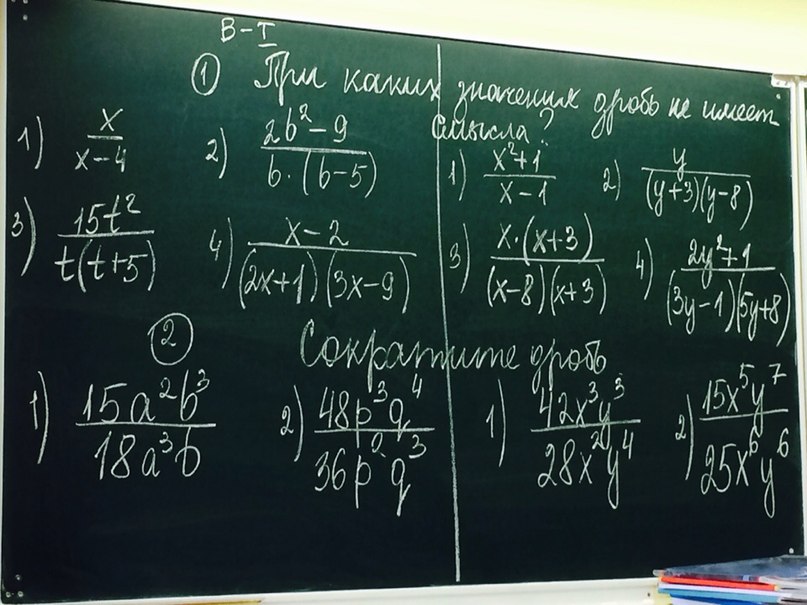 В-I
① При каких значениях дробь не имеет
смысла?
1) x/(x-4)
2) (2b²-9)/(b·(b-5))
3) 15t²/(t(t+5))
4) (x-2)/((2x+1)(3x-9))
1) (x²+1)/(x-1)
2) y/((y+3)(y-8))
3) (x·(x+3))/((x-8)(x+3))
4) (2y²+1)/((3y-1)(5y+8))
② Сократите дробь
1) 15a²b³/18a³b
2) 48p³q⁴/36p²q³
1) 42x³y³/28x²y⁴
2) 15x⁵y⁷/25x⁶y⁶